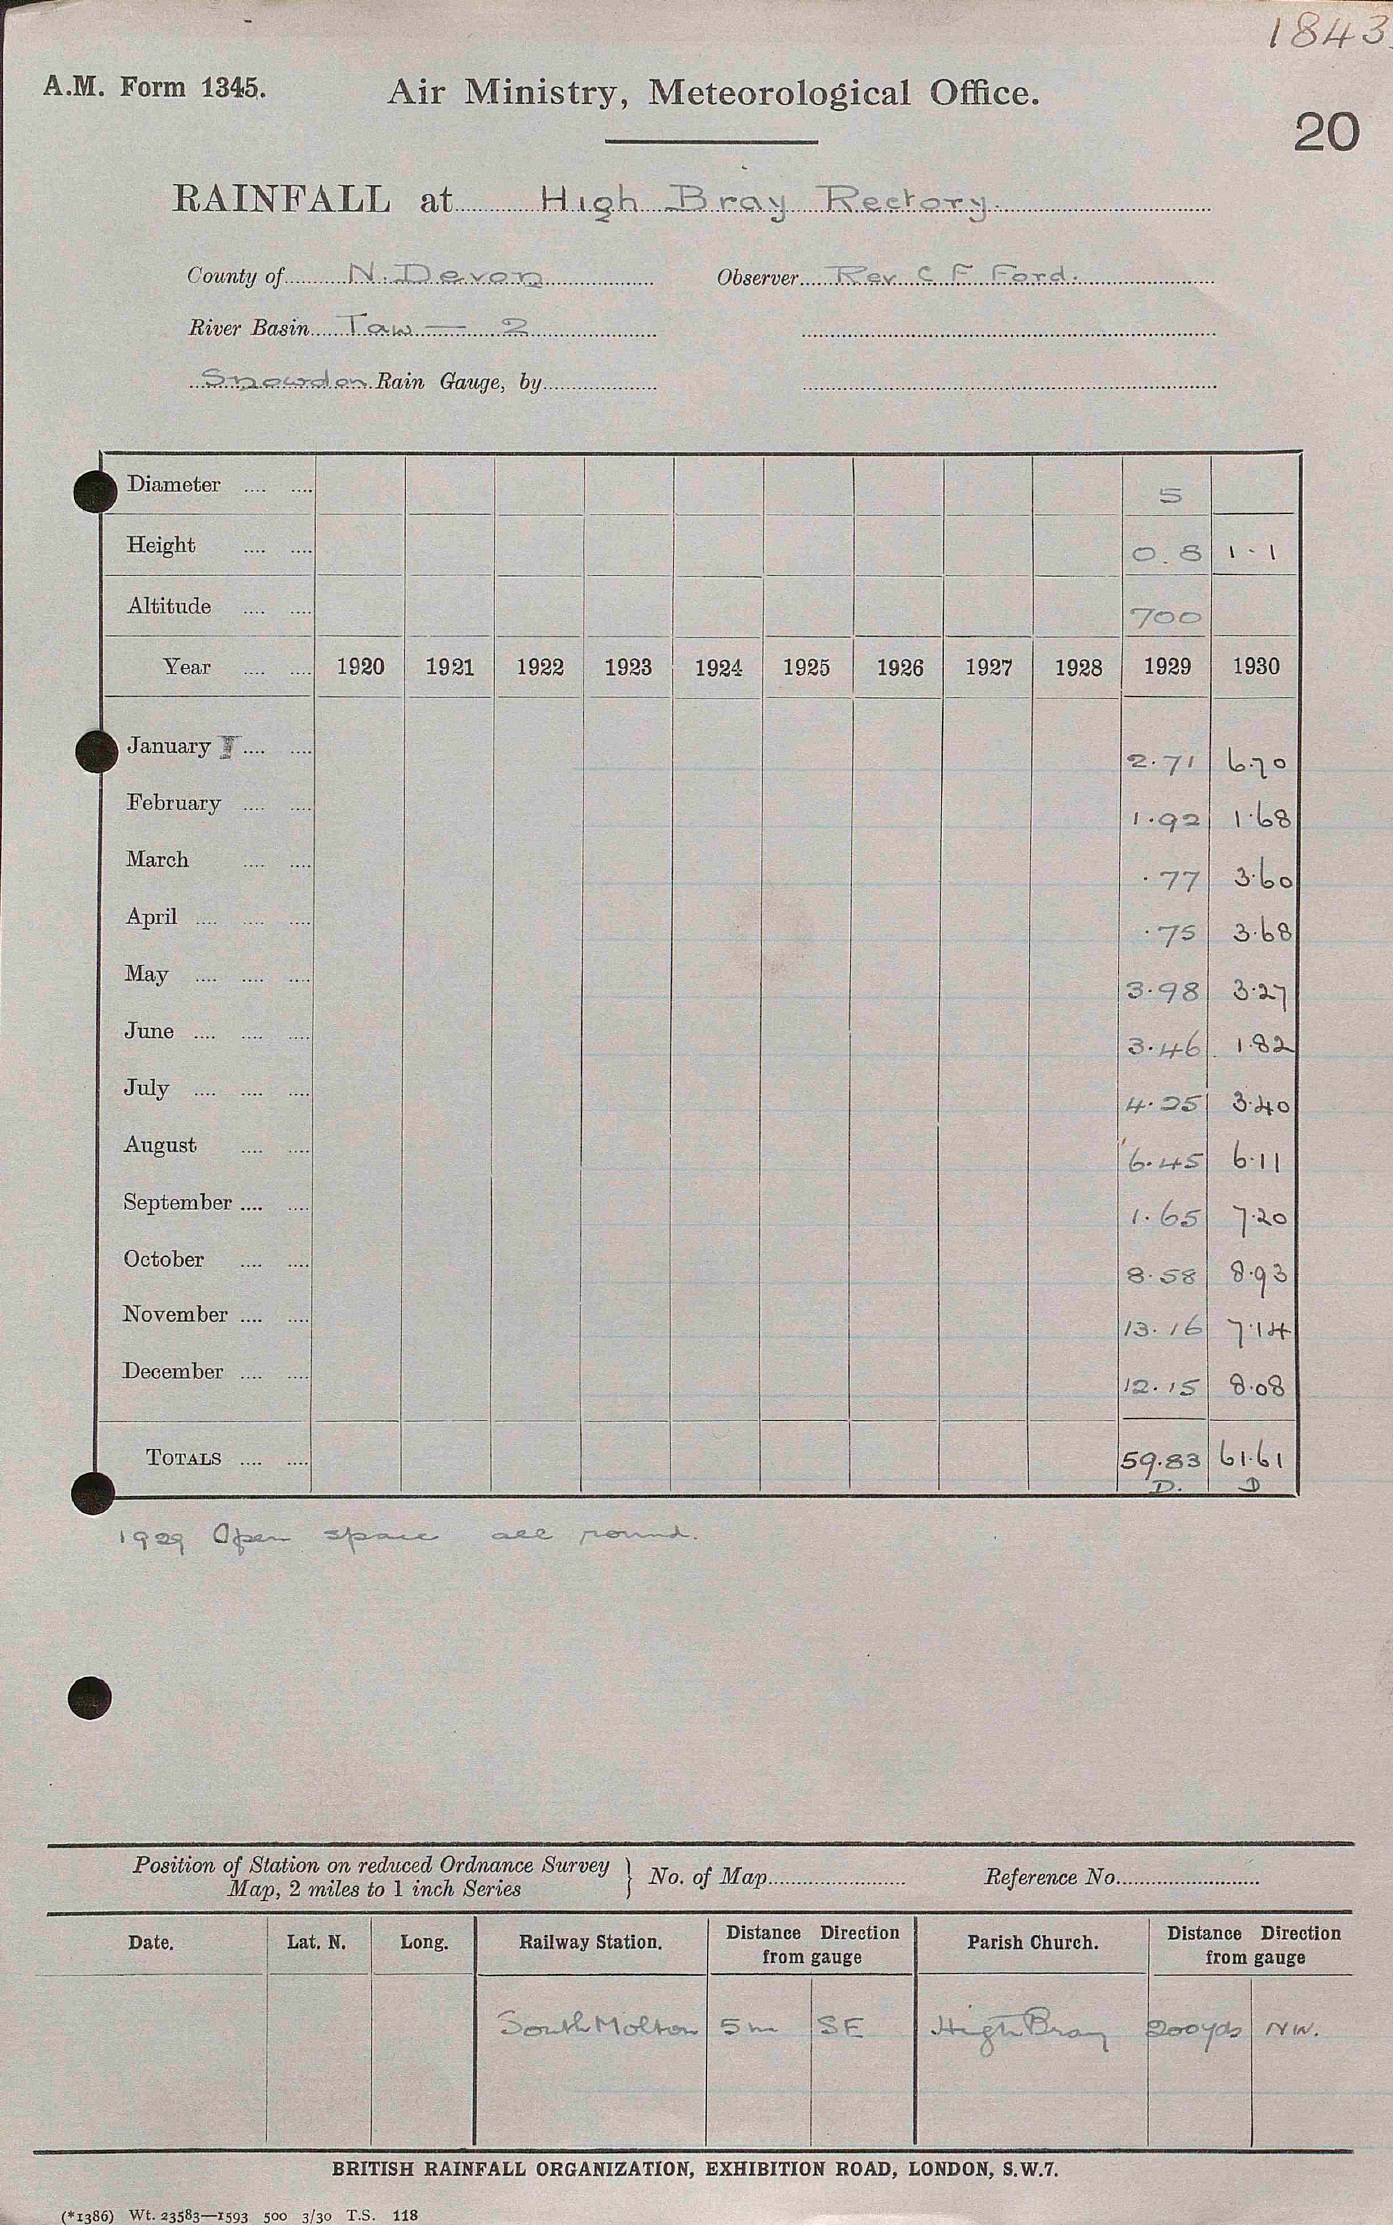 1843.
A.M. Form 1345. Air Ministry, Meteorological Office.
20
RAINFALL at High Bray Rectory.
County of N. Devon Observer Rev C F Ford.
River Basin Taw — 2
Snowdon Rain Gauge, by
Diameter .... .... 5
Height .... .... 0.8 1.1
Altitude .... .... 700
Year .... .... 1920 1921 1922 1923 1924 1925 1926 1927 1928 1929 1930
January I .... .... 2.71 6.70
February .... .... 1.92 1.68
March .... .... .77 3.60
April .... .... .... .75 3.68
May .... .... .... 3.98 3.27
June .... .... .... 3.46 1.82
July .... .... .... 4.25 3.40
August .... .... 6.45 6.11
September .... .... 1.65 7.20
October .... .... 8.58 8.93
November .... .... 13.16 7.14
December .... .... 12.15 8.08
TOTALS .... .... 59.83 61.61
D. D
1929 Open space all round.
Position of Station on reduced Ordnance Survey Map, 2 miles to 1 inch Series } No. of Map Reference No.
Date. Lat. N. Long. Railway Station. Distance Direction from gauge Parish Church. Distance Direction from gauge
South Molton 5 m SE High Bray 200 yds NW.
BRITISH RAINFALL ORGANIZATION, EXHIBITION ROAD, LONDON, S.W.7.
(*1386) Wt. 23583—1593 500 3/30 T.S. 118